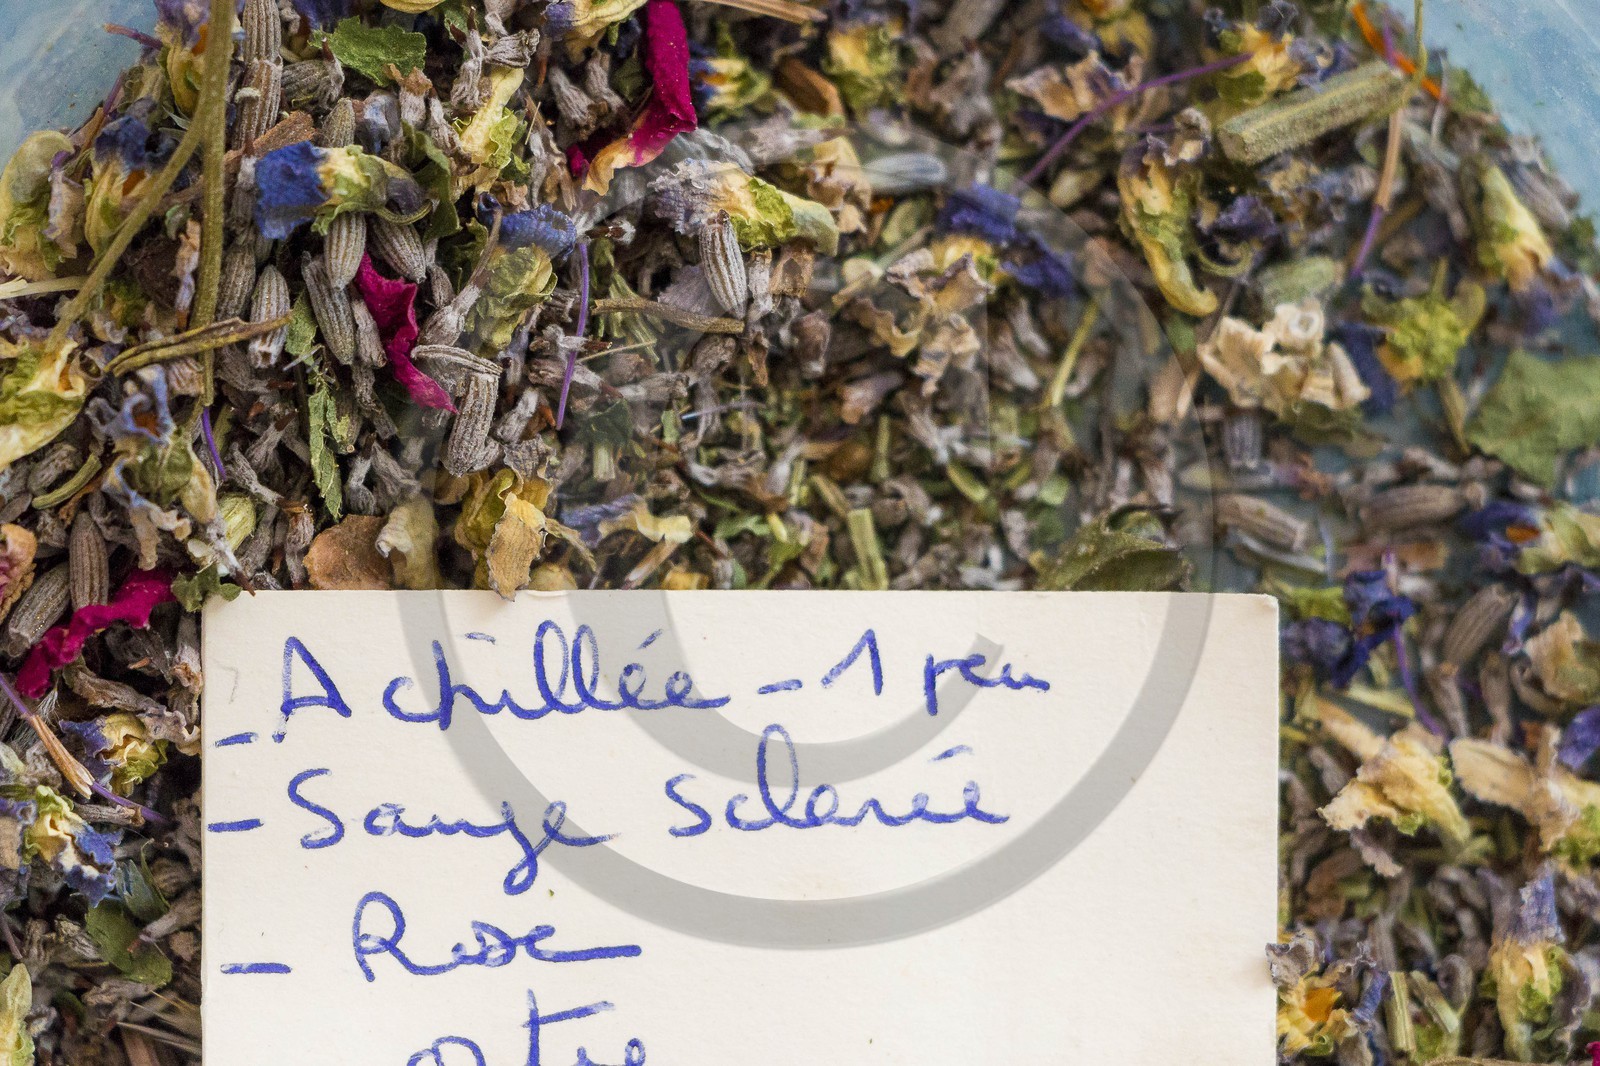 - Achillée - 1 peu
- Sauge Sclarée
- Rose